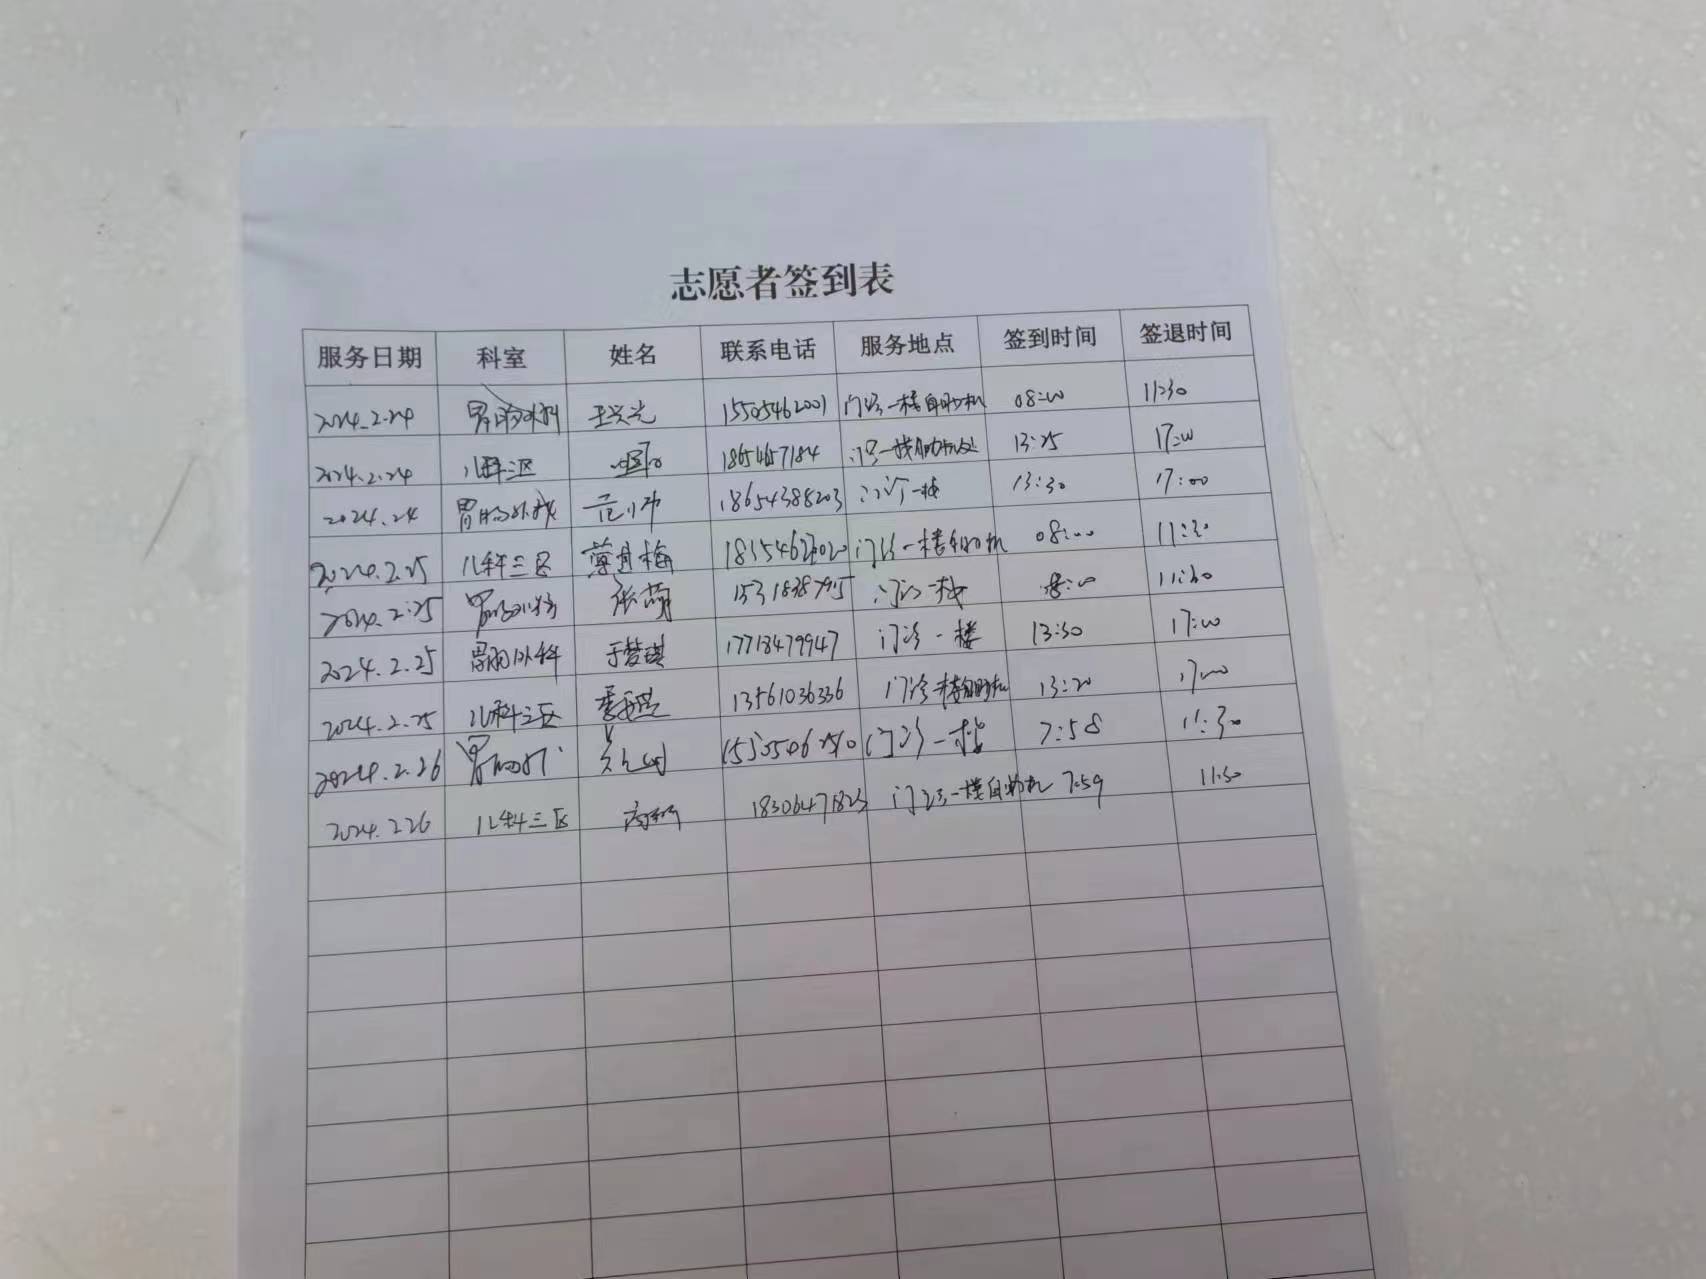 志愿者签到表
服务日期 科室 姓名 联系电话 服务地点 签到时间 签退时间
2024.2.24 胃肠外科 王兴光 15505462001 门诊一楼自助机 08:00 11:30
2024.2.24 儿科三区 门诊一楼自助机处 13:25 17:00
2024.24 胃肠外科 范小布 18654388203 门诊一楼 13:30 17:00
2024.2.25 儿科三区 薄月梅 门诊一楼自助机 08:00 11:30
2024.2.25 胃肠外科 张萌 门诊一楼 8:00 11:30
2024.2.25 胃肠外科 于梦琪 17718479947 门诊一楼 13:30 17:00
2024.2.25 儿科三区 13561036336 门诊一楼自助机 13:20 17:00
2024.2.26 胃肠外 门诊一楼 7:58 11:30
2024.2.26 儿科三区 18306471823 门诊一楼自助机 7:59 11:30